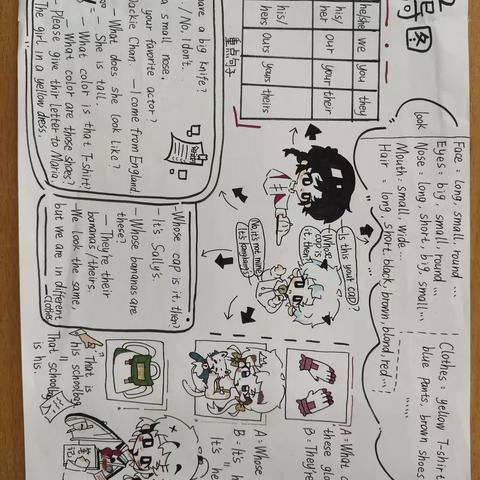 2
导图
he/she we you they
his/her our your their
his/hers ours yours theirs
重点句子
look
Face = long, small, round ...
Eyes: big, small, round ...
Nose = long, short, big, small ...
Mouth: small, wide ...
Hair = long, short, black, brown, blond, red ...!
Clothes: yellow T-shirt
blue pants brown shoes
......
have a big knife?
/ No, I don't.
a small nose.
your favorite actor?
Jackie Chan. — I come from England.
— What does she look like?
— She is tall.
— What color is that T-shirt?
— What color are those shoes?
Please give thir letter to Maria.
The girl in a yellow dress.
Is this your cap?
Whose cap is it, then?
No, it's not mine.
—Whose cap is it, then?
— It's Sally's.
—Whose bananas are these?
— They're their bananas / theirs.
—We look the same, but we are in different clothes
A: What
these
B: They're
A: Whose
B: It's
"
It's he
That is his schoolbag
=
That schoolbag is his.
笔记